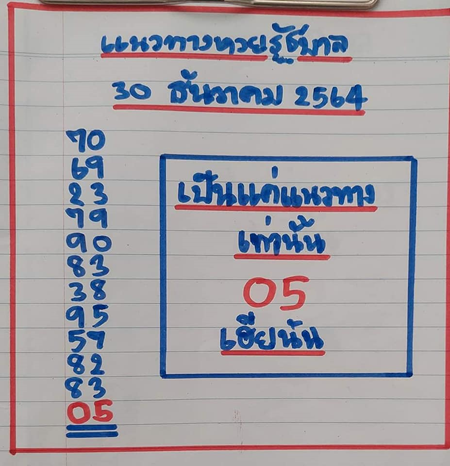 แนวทางหวยรัฐบาล
30 ธันวาคม 2564
70
69
23
79
90
83
38
95
57
82
83
05
เป็นแค่แนวทาง
เท่านั้น
05
เฮียนัน